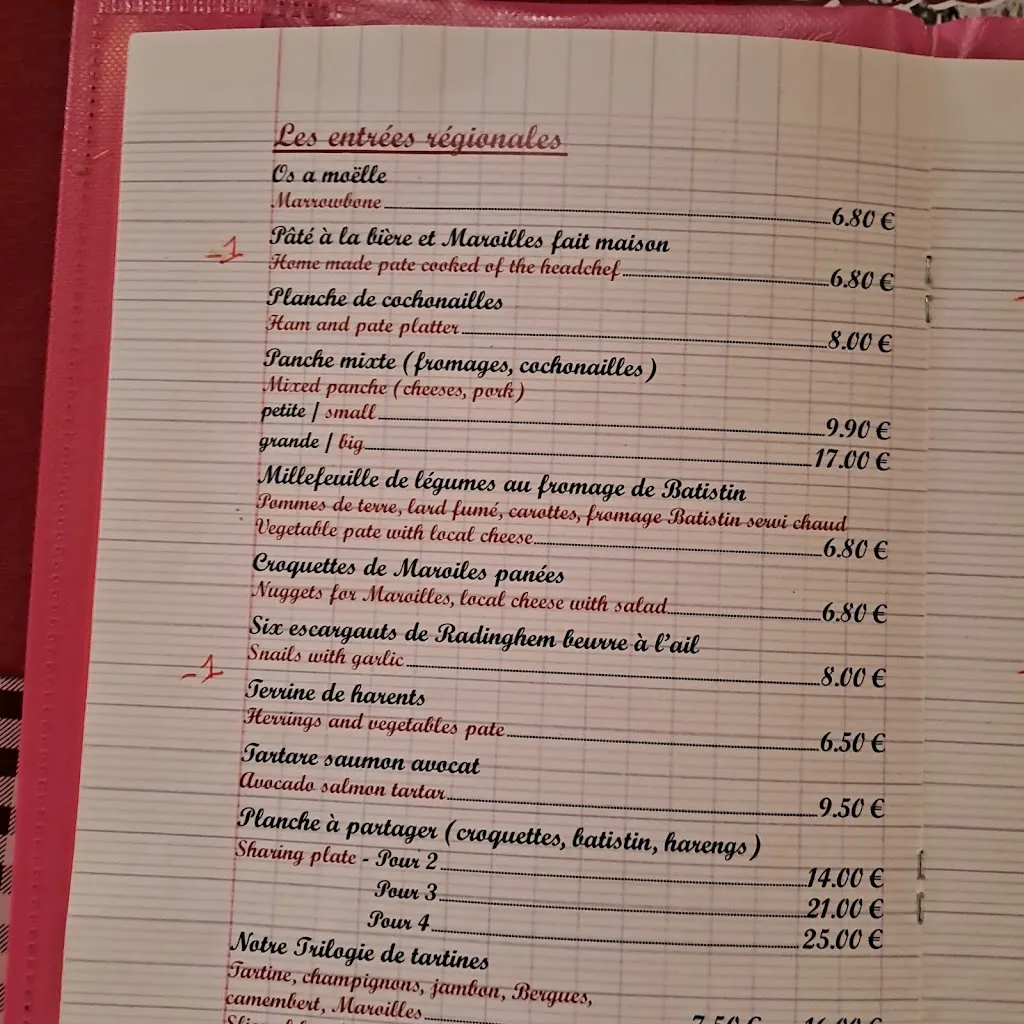 Les entrées régionales
Os a moëlle
Marrowbone 6.80 €
-1 Pâté à la bière et Maroilles fait maison
Home made pate cooked of the headchef 6.80 €
Planche de cochonailles
Ham and pate platter 8.00 €
Panche mixte (fromages, cochonailles)
Mixed panche (cheeses, pork)
petite / small 9.90 €
grande / big 17.00 €
Millefeuille de légumes au fromage de Batistin
Pommes de terre, lard fumé, carottes, fromage Batistin servi chaud
Vegetable pate with local cheese 6.80 €
Croquettes de Maroiles panées
Nuggets for Maroilles, local cheese with salad 6.80 €
Six escargauts de Radinghem beurre à l'ail
Snails with garlic 8.00 €
-1 Terrine de harents
Herrings and vegetables pate 6.50 €
Tartare saumon avocat
Avocado salmon tartar 9.50 €
Planche à partager (croquettes, batistin, harengs)
Sharing plate - Pour 2 14.00 €
Pour 3 21.00 €
Pour 4 25.00 €
Notre Trilogie de tartines
Tartine, champignons, jambon, Bergues,
camembert, Maroilles 7.50 € 16.00 €